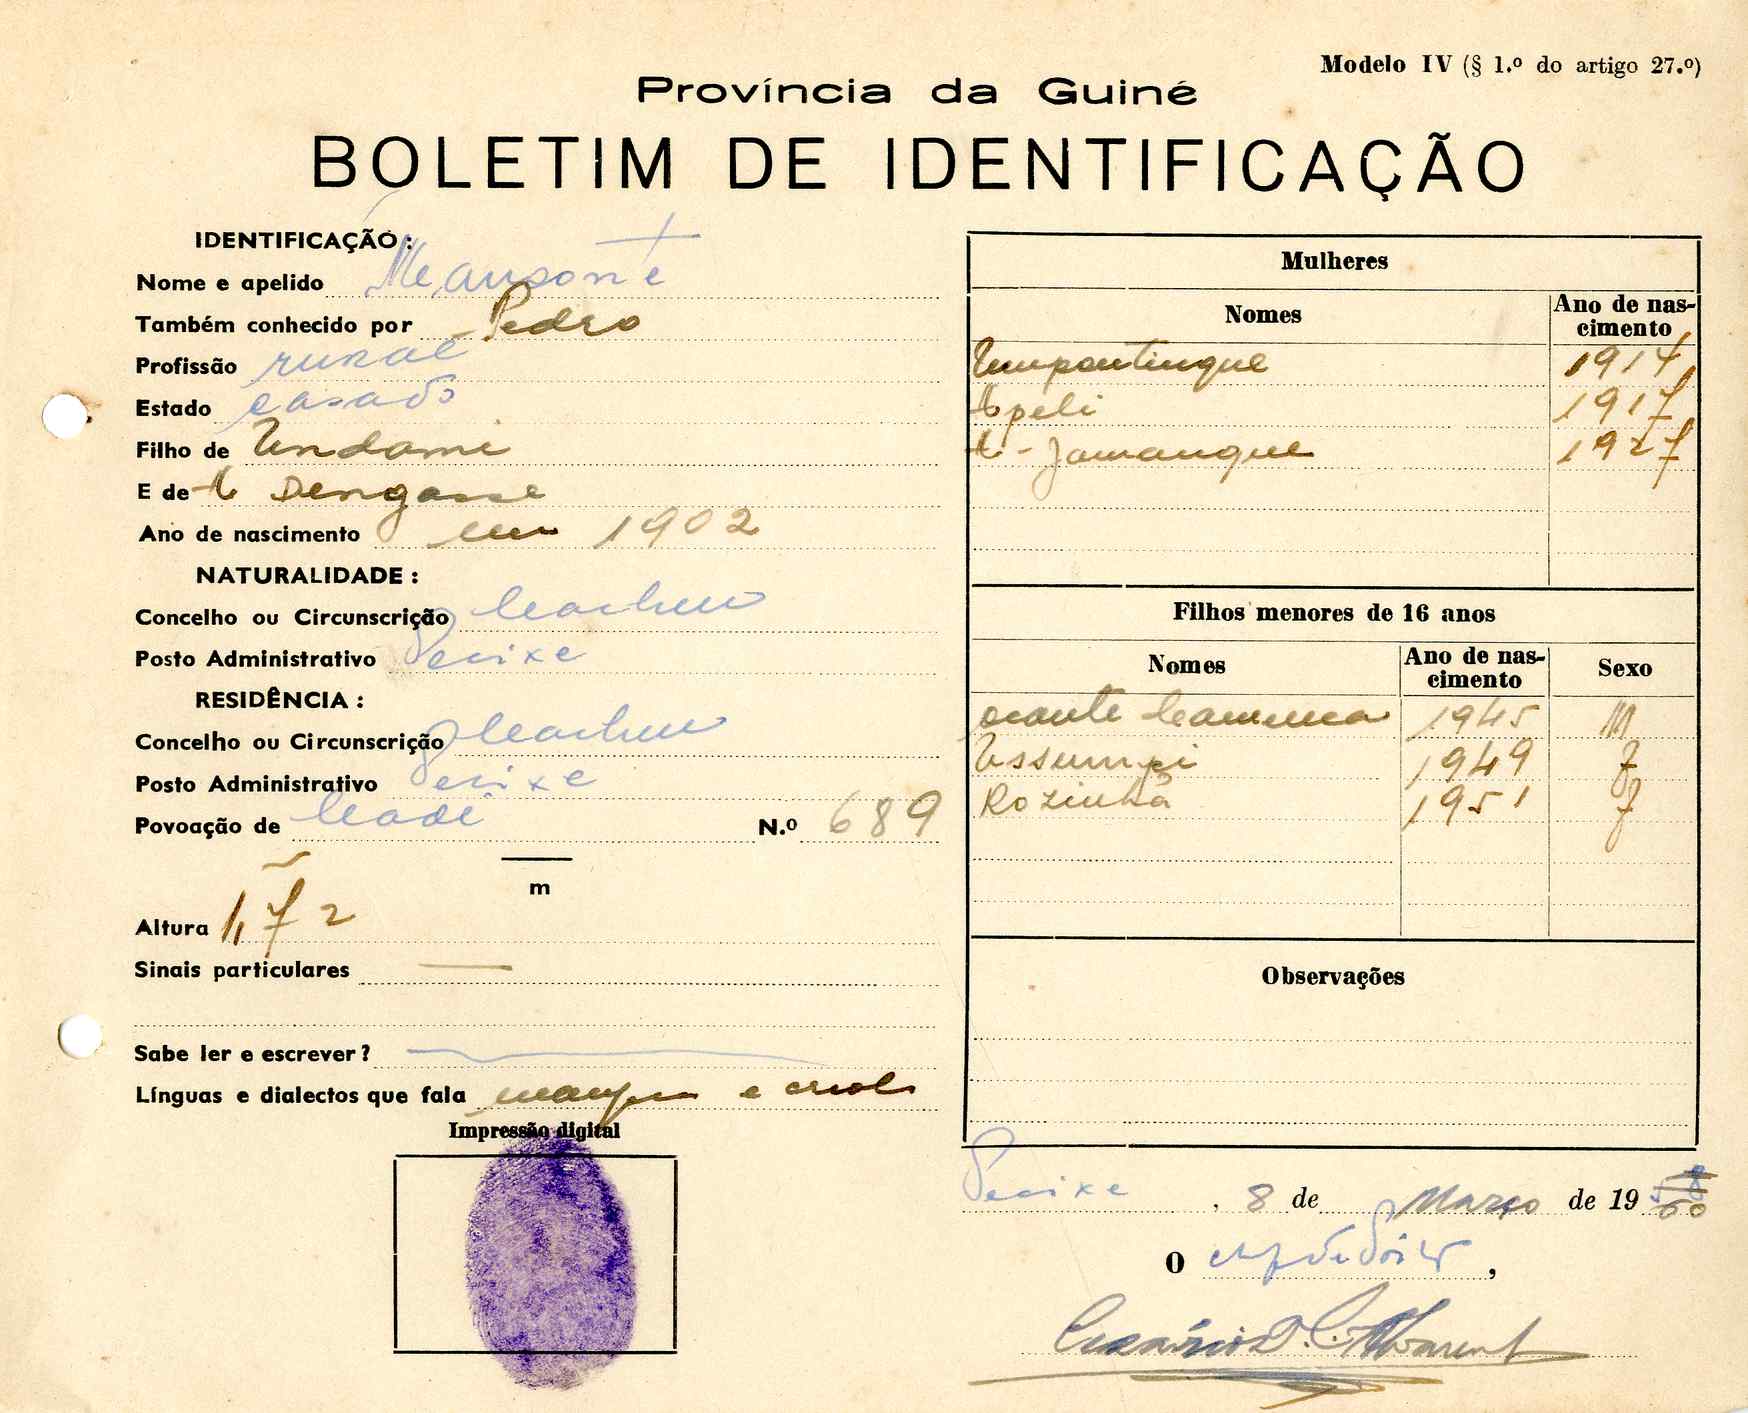 Modelo IV (§ 1.º do artigo 27.º)
Província da Guiné
BOLETIM DE IDENTIFICAÇÃO
IDENTIFICAÇÃO:
Nome e apelido
Também conhecido por Pedro
Profissão rural
Estado casado
Filho de Undami
E de Dengasse
Ano de nascimento em 1902
NATURALIDADE:
Concelho ou Circunscrição Cacheu
Posto Administrativo Pecixe
RESIDÊNCIA:
Concelho ou Circunscrição Cacheu
Posto Administrativo Pecixe
Povoação de N.º 689
m
Altura 1,72
Sinais particulares —
Sabe ler e escrever?
Línguas e dialectos que fala e criol
Impressão digital
Mulheres
Nomes Ano de nascimento
1914
1917
1927
Filhos menores de 16 anos
Nomes Ano de nascimento Sexo
1945 M
Ussumpi 1949 F
Rozinha 1951 F
Observações
Pecixe, 8 de Março de 1960
O chefe de Posto,